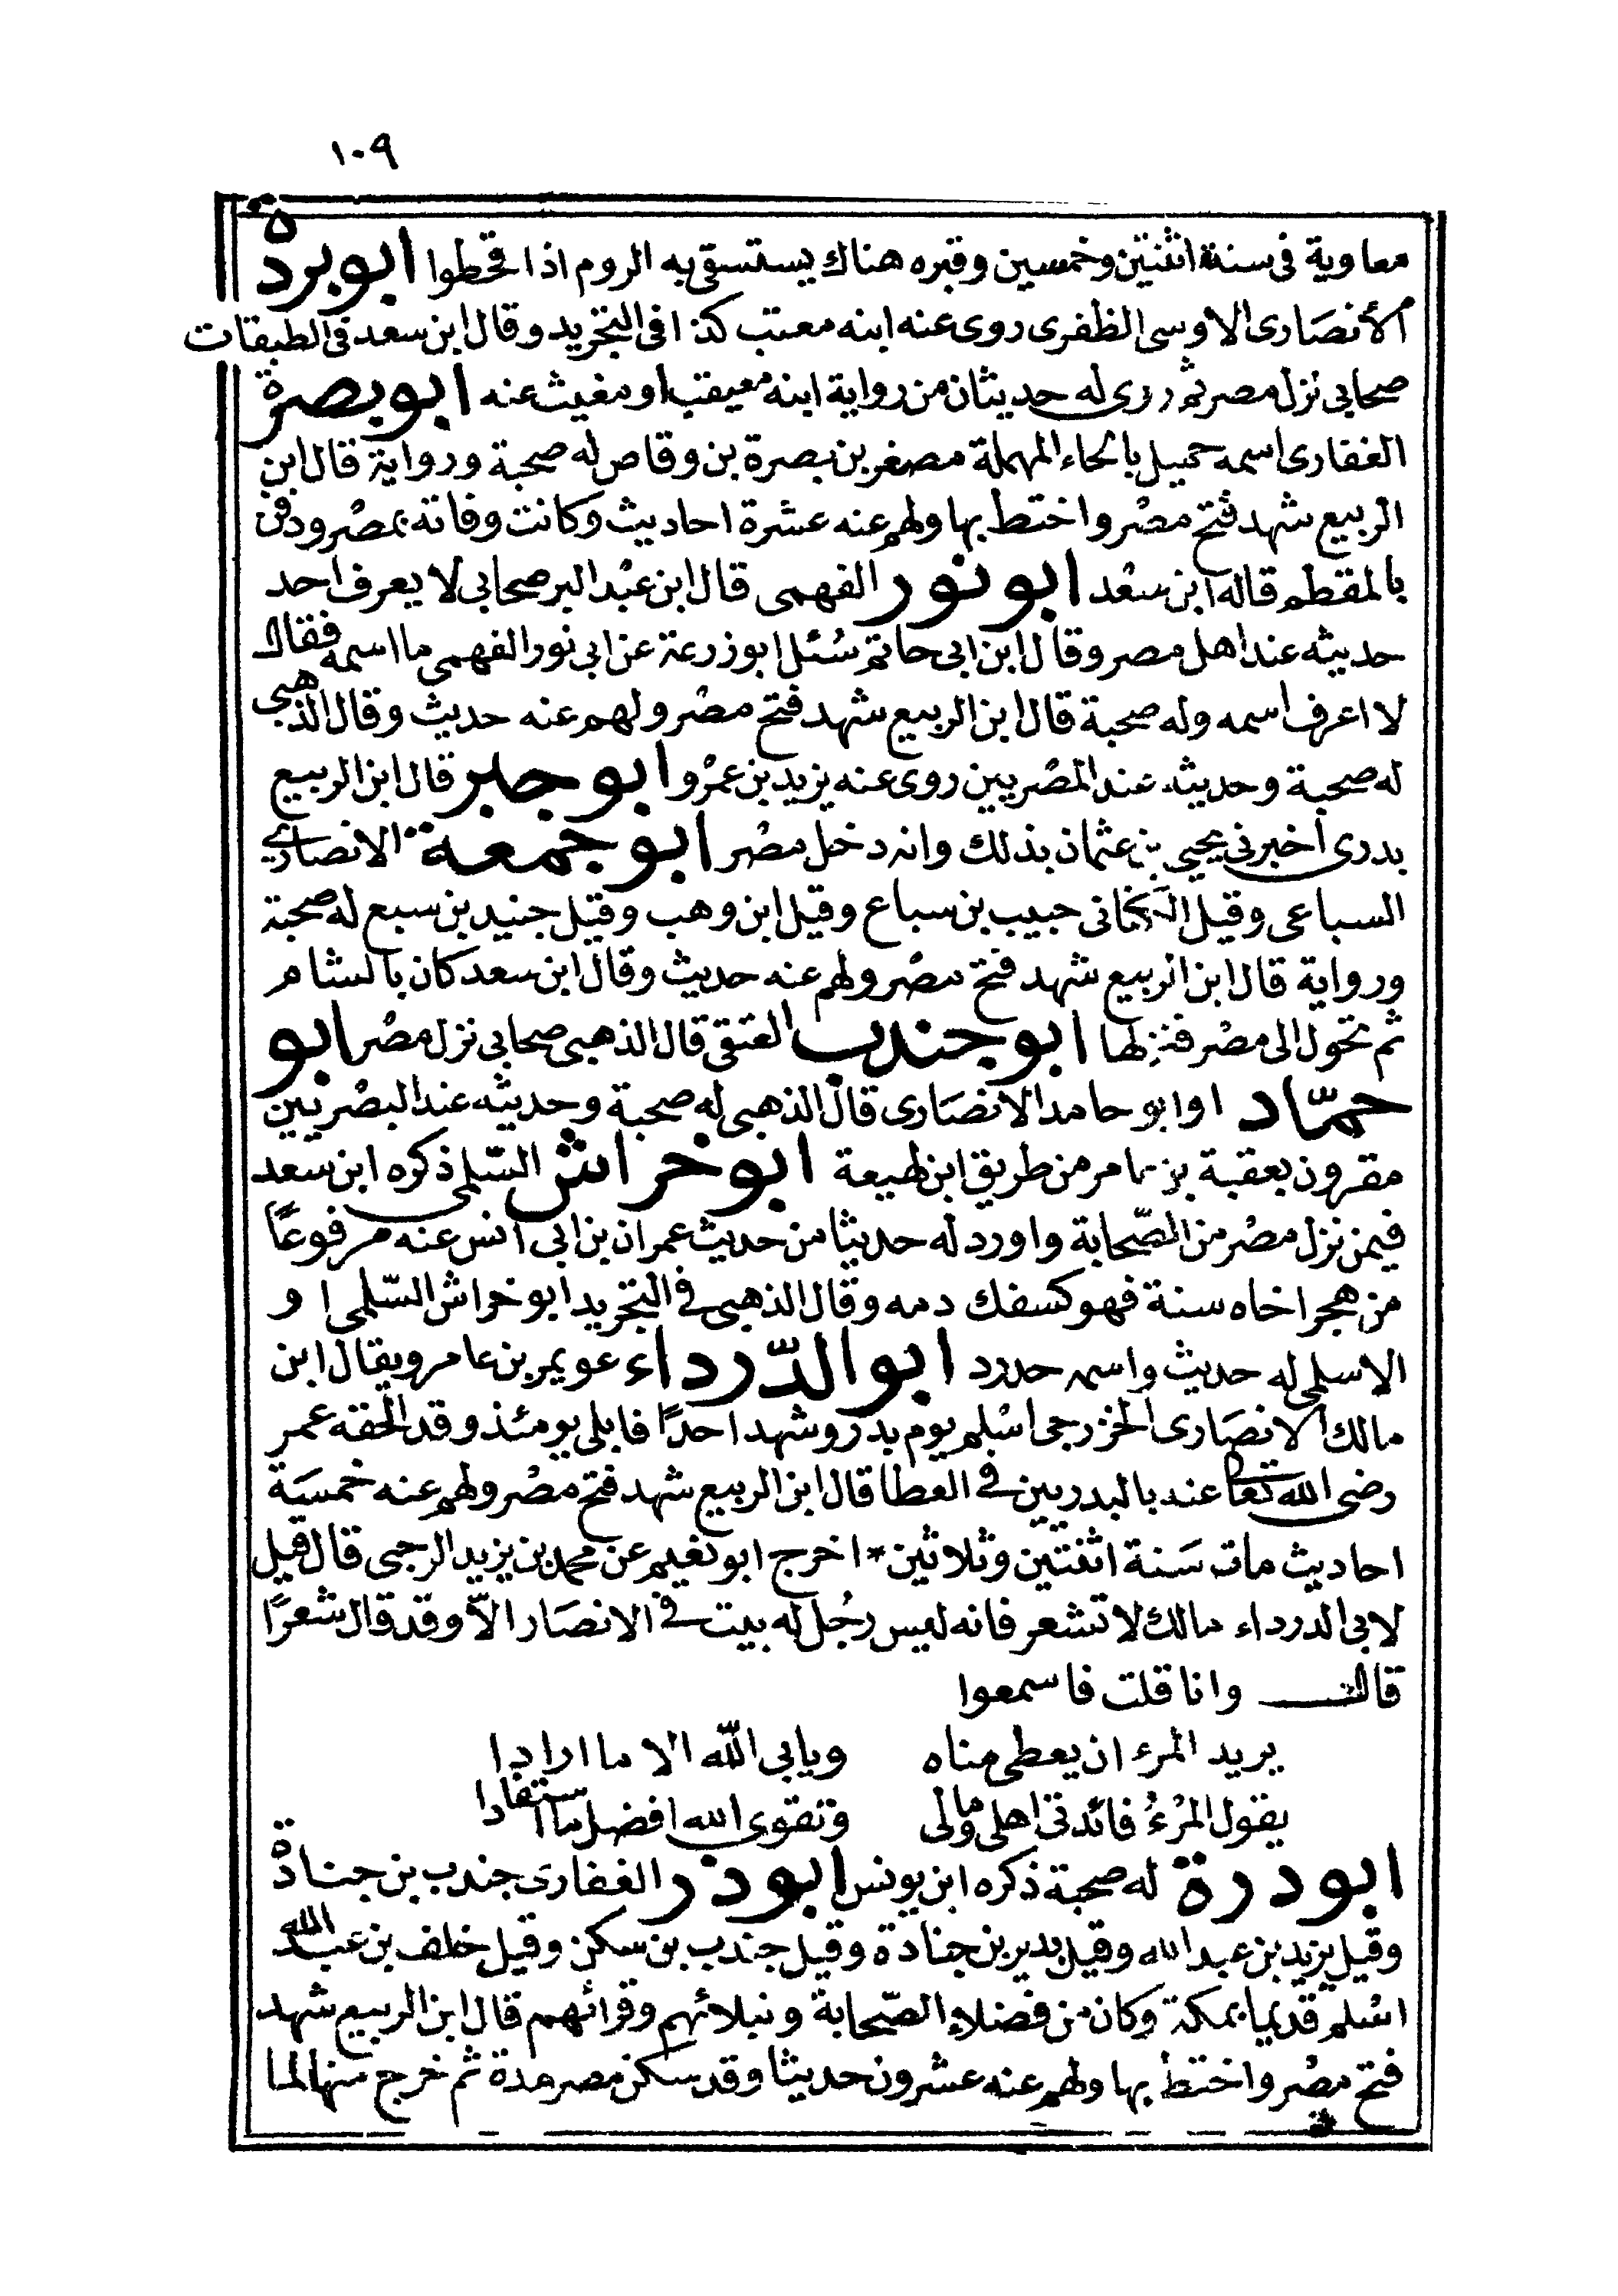 ١٠٩
معاوية فى سنة اثنتين وخمسين وقبره هناك يستسقى به الروم اذا قحطوا ابو بردة
الأنصارى الاوسى الظفرى روى عنه ابنه معتب كذا فى التجريد وقال ابن سعد فى الطبقات
صحابى نزل مصر ثم روى له حديثان من رواية ابنه معيقب او مغيث عنه ابو بصرة
الغفارى اسمه حميل بالحاء المهملة مصغر بن بصرة بن وقاص له صحبة ورواية قال ابن
الربيع شهد فتح مصر واختط بها ولهم عنه عشرة احاديث وكانت وفاته بمصر ودفن
بالمقطم قاله ابن سعد ابو نور الفهمى قال ابن عبد البر صحابى لا يعرف احد
حديثه عند اهل مصر وقال ابن ابى حاتم سئل ابو زرعة عن ابى نور الفهمى ما اسمه فقال
لا اعرف اسمه وله صحبة قال ابن الربيع شهد فتح مصر ولهم عنه حديث وقال الذهبى
له صحبة وحديثه عند المصريين روى عنه يزيد بن عمرو ابو جبر قال ابن الربيع
بدرى اخبرنى يحيى بن عثمان بذلك وانه دخل مصر ابو جمعة الانصارى
السباعى وقيل الكنانى حبيب بن سباع وقيل ابن وهب وقيل جنيد بن سبع له صحبة
ورواية قال ابن الربيع شهد فتح مصر ولهم عنه حديث وقال ابن سعد كان بالشام
ثم تحول الى مصر فنزلها ابو جندب العتقى قال الذهبى صحابى نزل مصر ابو
حمّاد او ابو حامد الانصارى قال الذهبى له صحبة وحديثه عند البصريين
مقرون بعقبة بن عامر من طريق ابن لهيعة ابو خراش السّلمى ذكره ابن سعد
فيمن نزل مصر من الصّحابة واورد له حديثا من حديث عمران بن ابى انس عنه مرفوعًا
من هجر اخاه سنة فهو كسفك دمه وقال الذهبى فى التجريد ابو خراش السّلمى او
الاسلمى له حديث واسمه حدرد ابو الدّرداء عويمر بن عامر ويقال ابن
مالك الانصارى الخزرجى اسلم يوم بدر وشهد احدًا فابلى يومئذ وقد الحقه عمر
رضى الله تعا عنه بالبدريين فى العطا قال ابن الربيع شهد فتح مصر ولهم عنه خمسة
احاديث مات سنة اثنتين وثلاثين * اخرج ابو نعيم عن محمد بن يزيد الرحبى قال قيل
لابى الدرداء مالك لا تشعر فانه ليس رجُل له بيت فى الانصار الاّ وقد قال شعرًا
قال وانا قلت فاسمعوا
يريد المرء ان يعطى مناه ويابى الله الا ما ارادا
يقول المرْءُ فائدتى اهلى ومالى وتقوى الله افضل ما استفادا
ابو درة له صحبة ذكره ابن يونس ابو ذر الغفارى جندب بن جنادة
وقيل يزيد بن عبد الله وقيل بدير بن جنادة وقيل جندب بن سكن وقيل خلف بن عبد الله
اسْلم قديما بمكة وكان من فضلاء الصّحابة ونبلائهم وقرائهم قال ابن الربيع شهد
فتح مصر واختط بها ولهم عنه عشرون حديثا وقد سكن مصر مدة ثم خرج منها لما